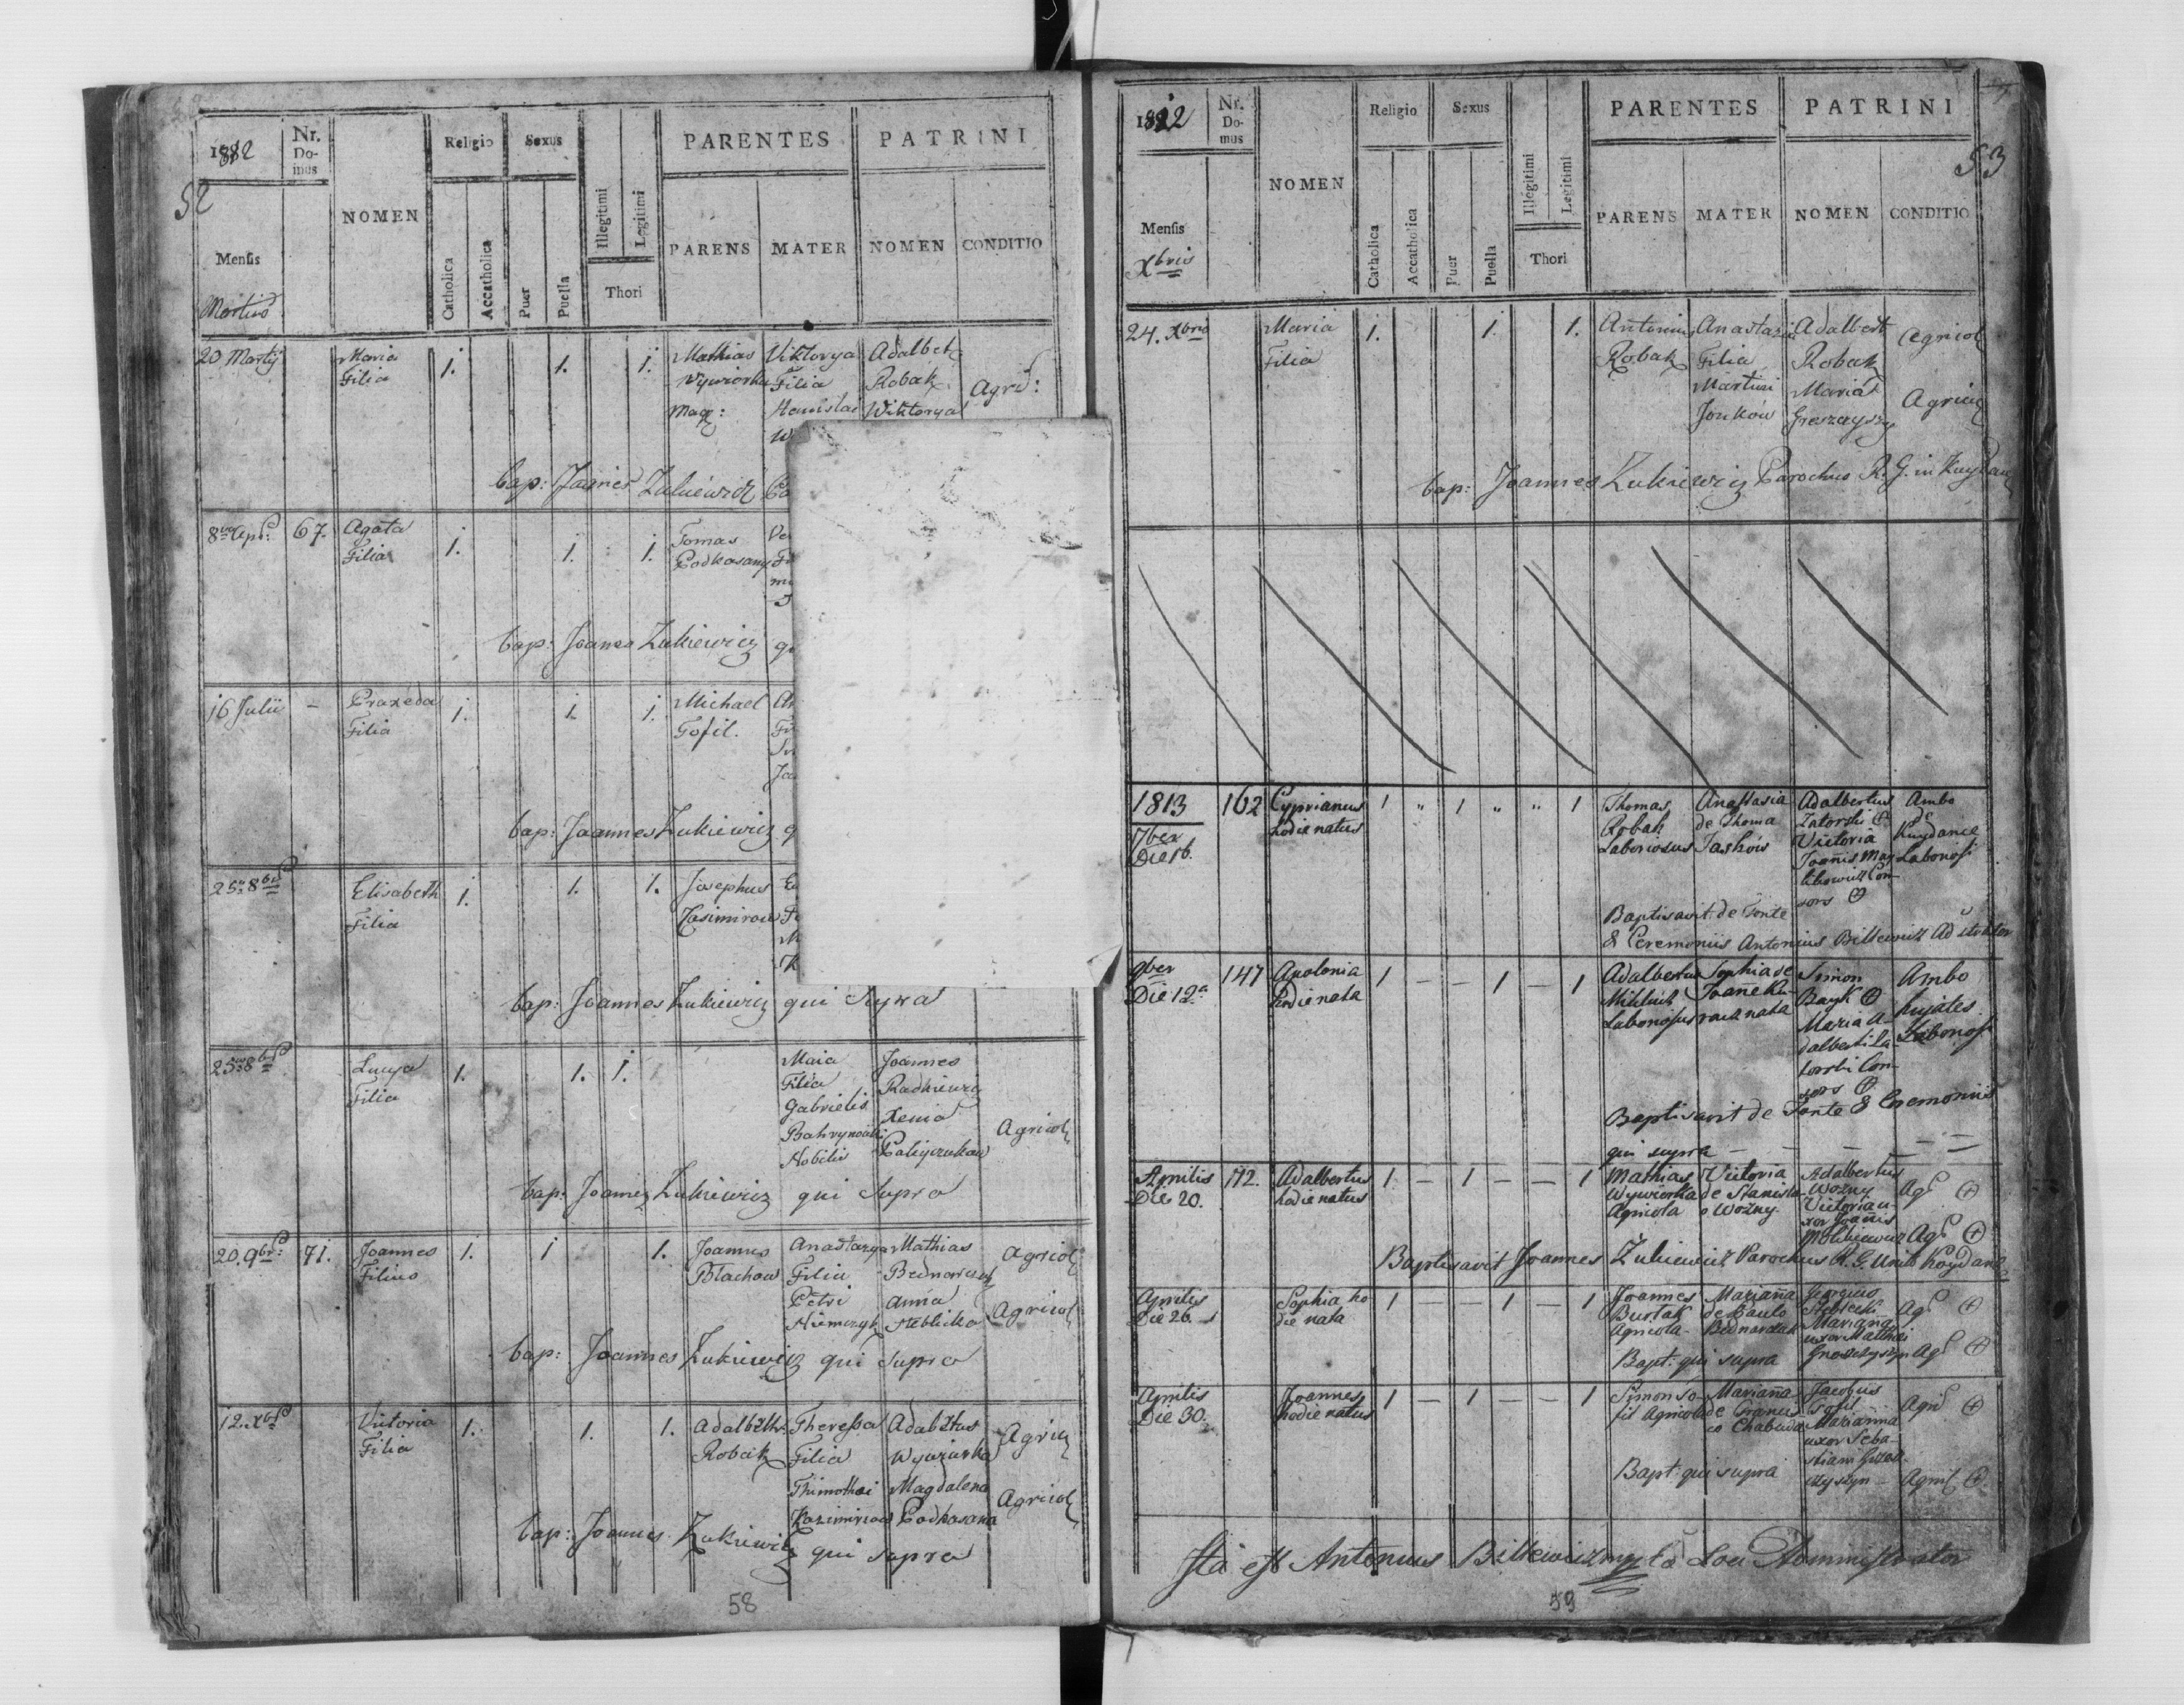 1812
Nr.
Do-
mus
NOMEN
Religio
Sexus
Illegitimi
Legitimi
PARENTES
PATRINI
52
Mensis
Martius
Catholica
Accatholica
Puer
Puella
Thori
PARENS
MATER
NOMEN
CONDITIO
20 Martij
Maria
Filia
1.
1.
1.
Mathias
Wywiorka
Viktorya
Filia
Stanislai
Adalbert
Robak
Wiktorya
Agric:
bap: Joannes Zukiewicz
67.
Agata
Filia
1.
1.
1.
Tomas
Podkasany
bap: Joannes Zukiewicz
16 Julii
–
Praxeda
Filia
1.
1.
1.
Michael
Tofil.
bap: Joannes Zukiewicz
25. 8bris
Elisabeth
Filia
1.
1.
1.
Josephus
Kasimirow
bap: Joannes Zukiewicz qui supra
25. 8bris
Lucya
Filia
1.
1.
1.
Maia
Filia
Gabrielis
Nobilis
Joannes
Radkiewicz
Xenia
Agricol
bap: Joannes Zukiewicz qui supra
20. 9br:
71.
Joannes
Filius
1.
1
1.
Joannes
Blachow
Anastazya
Filia
Petri
Niemczyk
Mathias
Bednarczuk
Anna
Steblicka
Agricol
Agricol
bap: Joannes Zukiewicz qui supra
12. Xbris
Victoria
Filia
1.
1.
1.
Adalbeth
Robak
Theressa
Filia
Thimothei
Kazimirow
Adalbertus
Wywiorka
Magdalena
Podkasana
Agric
Agricol
bap: Joannes Zukiewicz qui supra
58
1812
Nr.
Do-
mus
NOMEN
Religio
Sexus
Illegitimi
Legitimi
PARENTES
PATRINI
53
Mensis
Xbris
Catholica
Accatholica
Puer
Puella
Thori
PARENS
MATER
NOMEN
CONDITIO
24. Xbris
Maria
Filia
1.
1.
1.
Antonius
Robak
Anastazia
Filia
Martini
Jonkow
Adalbert
Robak
Maria
Agricol
Agricol
bap: Joannes Zukiewicz Parochus R. G. in Kuydanc
1813
7ber
Die 16.
162
Cyprianus
hodie natus
1
"
1
"
"
1
Thomas
Robak
Laboriosus
Anastasia
de Thoma
Jaskow
Adalbertus
Zatorski
Victoria
Joannis
Con-
sors
Ambo
de
Kuydance
Laboriosi
Baptisavit de Fonte
& Ceremoniis Antonius Bilkewicz Adstrator
9ber
Die 12a
147
Apolonia
hodie nata
1
–
–
1
–
1
Adalbertus
Laboriosus
Sophia de
Joanne Ku-
rack nata
Simon
Bayk
Maria A-
dalberti Za-
torski Con-
sors
Ambo
hujates
Laboriosi
Baptisavit de Fonte & Ceremoniis
qui supra – – – –
Aprilis
Die 20.
172.
Adalbertus
hodie natus
1
–
1
–
–
1
Mathias
Wywiorka
Agricola
Victoria
de Stanisla-
o Wozny
Adalbertus
Wozny
Victoria u-
xor Joannis
Agc
Agc
Baptisavit Joannes Zukiewicz Parochus R. G. Unit Kuydance
Aprilis
Die 26.
Sophia ho
die nata
1
–
–
1
–
1
Joannes
Burtak
Agricola
Marianna
de Paulo
Bednarczuk
Georgius
Steblecki
Marianna
uxor Matthei
Agc
Agc
Bapt: qui supra
Aprilis
Die 30.
Joannes
hodie natus
1
–
1
–
–
1
Simon So-
fil Agricola
Marianna
de Francis-
co Chabuda
Jacobus
Sofil
Marianna
uxor Seba-
stiani
Agric
Agric
Bapt: qui supra
Ita est Antonius Bilkewicz mp Loci Administrator
59